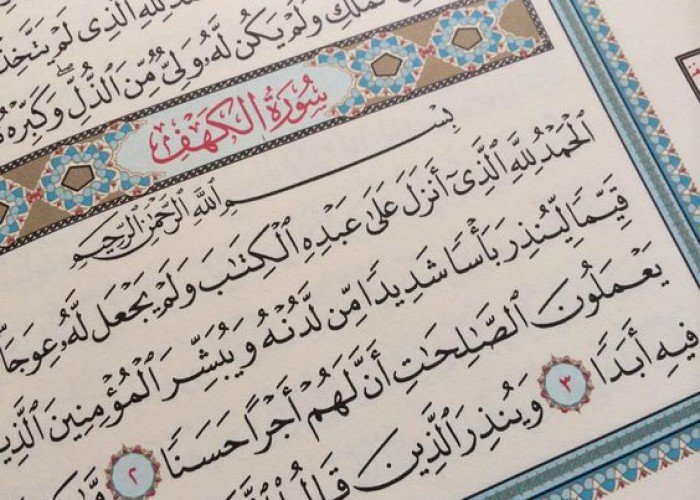 لِلَّهِ الَّذِى لَمْ يَتَّخِذْ
الْمُلْكِ وَلَمْ يَكُن لَّهُۥ وَلِىٌّ مِّنَ الذُّلِّ ۖ وَكَبِّرْهُ
سُورَةُ الْكَهْفِ
بِسْمِ اللَّهِ الرَّحْمَٰنِ الرَّحِيمِ
الْحَمْدُ لِلَّهِ الَّذِىٓ أَنزَلَ عَلَىٰ عَبْدِهِ الْكِتَٰبَ وَلَمْ يَجْعَل لَّهُۥ عِوَجَا
قَيِّمًا لِّيُنذِرَ بَأْسًا شَدِيدًا مِّن لَّدُنْهُ وَيُبَشِّرَ الْمُؤْمِنِينَ الَّذِينَ
يَعْمَلُونَ الصَّٰلِحَٰتِ أَنَّ لَهُمْ أَجْرًا حَسَنًا ٢
فِيهِ أَبَدًا ٣ وَيُنذِرَ الَّذِينَ قَالُوا